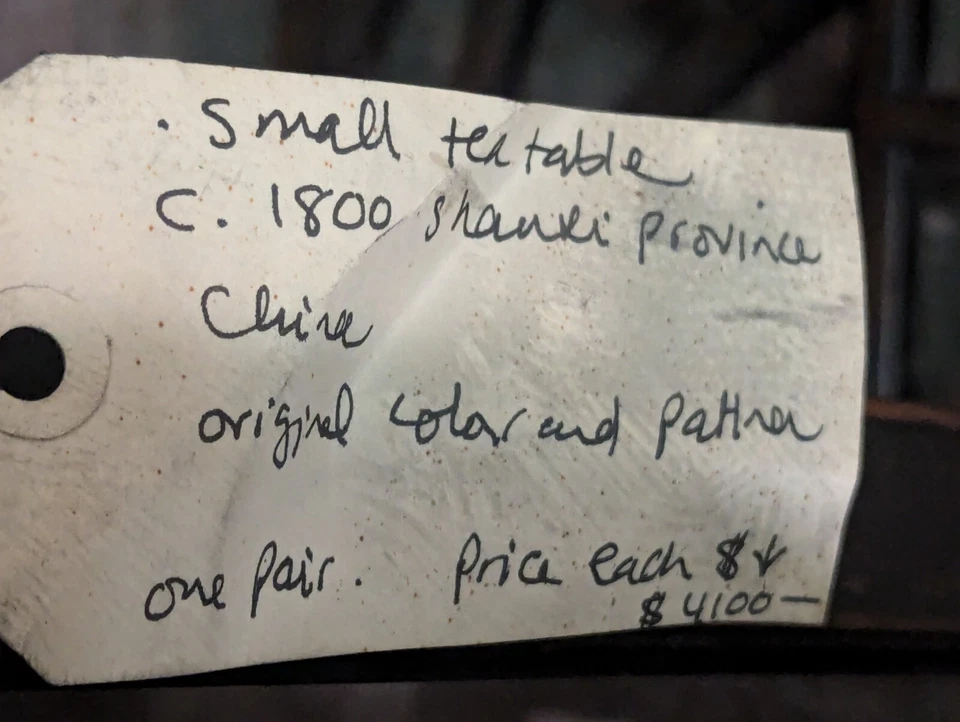 . Small tea table
C. 1800 Shanxi province
China
original color and pattina
one pair. Price each $ ↓
$ 4100 —